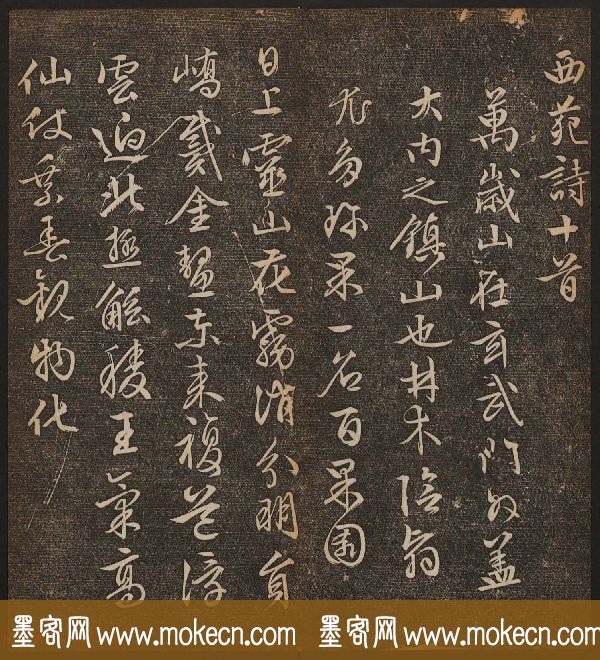 西苑詩十首
萬歲山在玄武門外蓋
大内之鎮山也林木陰翳
尤多珍果一名百果園
日上靈山花霧消分明員
嶠戴金鰲東來複道浮
雲迥北極觚稜王氣高
仙仗乘春觀物化
墨客网 www.mokecn.com 墨客网 www.mokecn.com